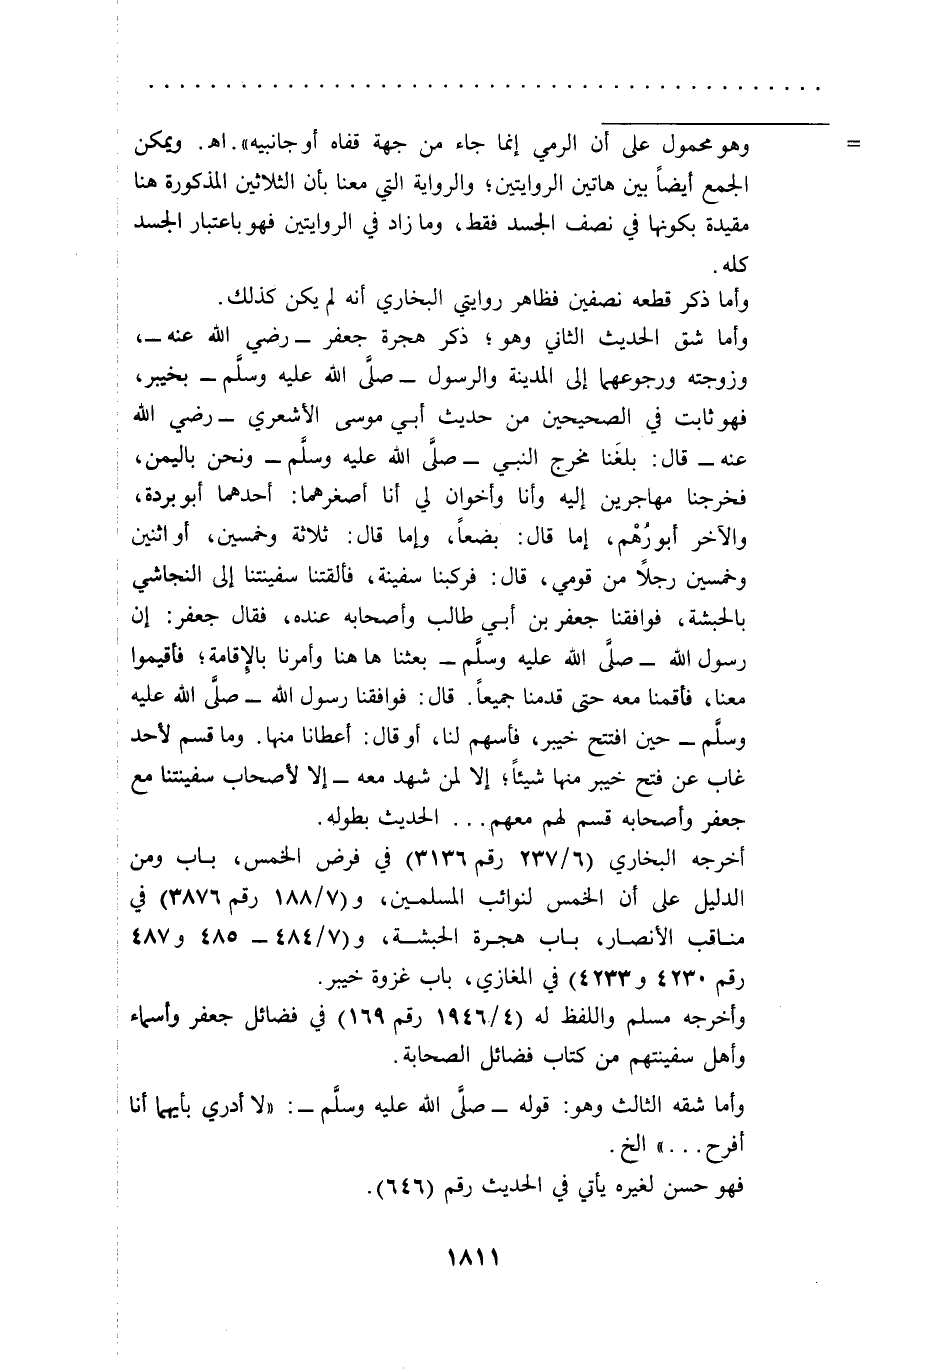 = وهو محمول على أن الرمي إنما جاء من جهة قفاه أو جانبيه». اهـ. ويمكن
الجمع أيضاً بين هاتين الروايتين؛ والرواية التي معنا بأن الثلاثين المذكورة هنا
مقيدة بكونها في نصف الجسد فقط، وما زاد في الروايتين فهو باعتبار الجسد
كله.
وأما ذكر قطعه نصفين فظاهر روايتي البخاري أنه لم يكن كذلك.
وأما شق الحديث الثاني وهو؛ ذكر هجرة جعفر ــ رضي الله عنه ــ،
وزوجته ورجوعهما إلى المدينة والرسول ــ صلَّى الله عليه وسلَّم ــ بخيبر،
فهو ثابت في الصحيحين من حديث أبي موسى الأشعري ــ رضي الله
عنه ــ قال: بلغَنا مخرج النبي ــ صلَّى الله عليه وسلَّم ــ ونحن باليمن،
فخرجنا مهاجرين إليه وأنا وأخوان لي أنا أصغرهما: أحدهما أبو بردة،
والآخر أبو رُهْم، إما قال: بضعاً، وإما قال: ثلاثة وخمسين، أو اثنين
وخمسين رجلاً من قومي، قال: فركبنا سفينة، فألقتنا سفينتنا إلى النجاشي
بالحبشة، فوافقنا جعفر بن أبي طالب وأصحابه عنده، فقال جعفر: إن
رسول الله ــ صلَّى الله عليه وسلَّم ــ بعثنا ها هنا وأمرنا بالإِقامة؛ فأقيموا
معنا، فأقمنا معه حتى قدمنا جميعاً. قال: فوافقنا رسول الله ــ صلَّى الله عليه
وسلَّم ــ حين افتتح خيبر، فأسهم لنا، أو قال: أعطانا منها. وما قسم لأحد
غاب عن فتح خيبر منها شيئاً؛ إلا لمن شهد معه ــ إلا لأصحاب سفينتنا مع
جعفر وأصحابه قسم لهم معهم... الحديث بطوله.
أخرجه البخاري (٦/ ٢٣٧ رقم ٣١٣٦) في فرض الخمس، باب ومن
الدليل على أن الخمس لنوائب المسلمين، و(٧/ ١٨٨ رقم ٣٨٧٦) في
مناقب الأنصار، باب هجرة الحبشة، و(٧/ ٤٨٤ ــ ٤٨٥ و ٤٨٧
رقم ٤٢٣٠ و ٤٢٣٣) في المغازي، باب غزوة خيبر.
وأخرجه مسلم واللفظ له (٤/ ١٩٤٦ رقم ١٦٩) في فضائل جعفر وأسماء
وأهل سفينتهم من كتاب فضائل الصحابة.
وأما شقه الثالث وهو: قوله ــ صلَّى الله عليه وسلَّم ــ: «لا أدري بأيهما أنا
أفرح...» الخ.
فهو حسن لغيره يأتي في الحديث رقم (٦٤٦).
١٨١١